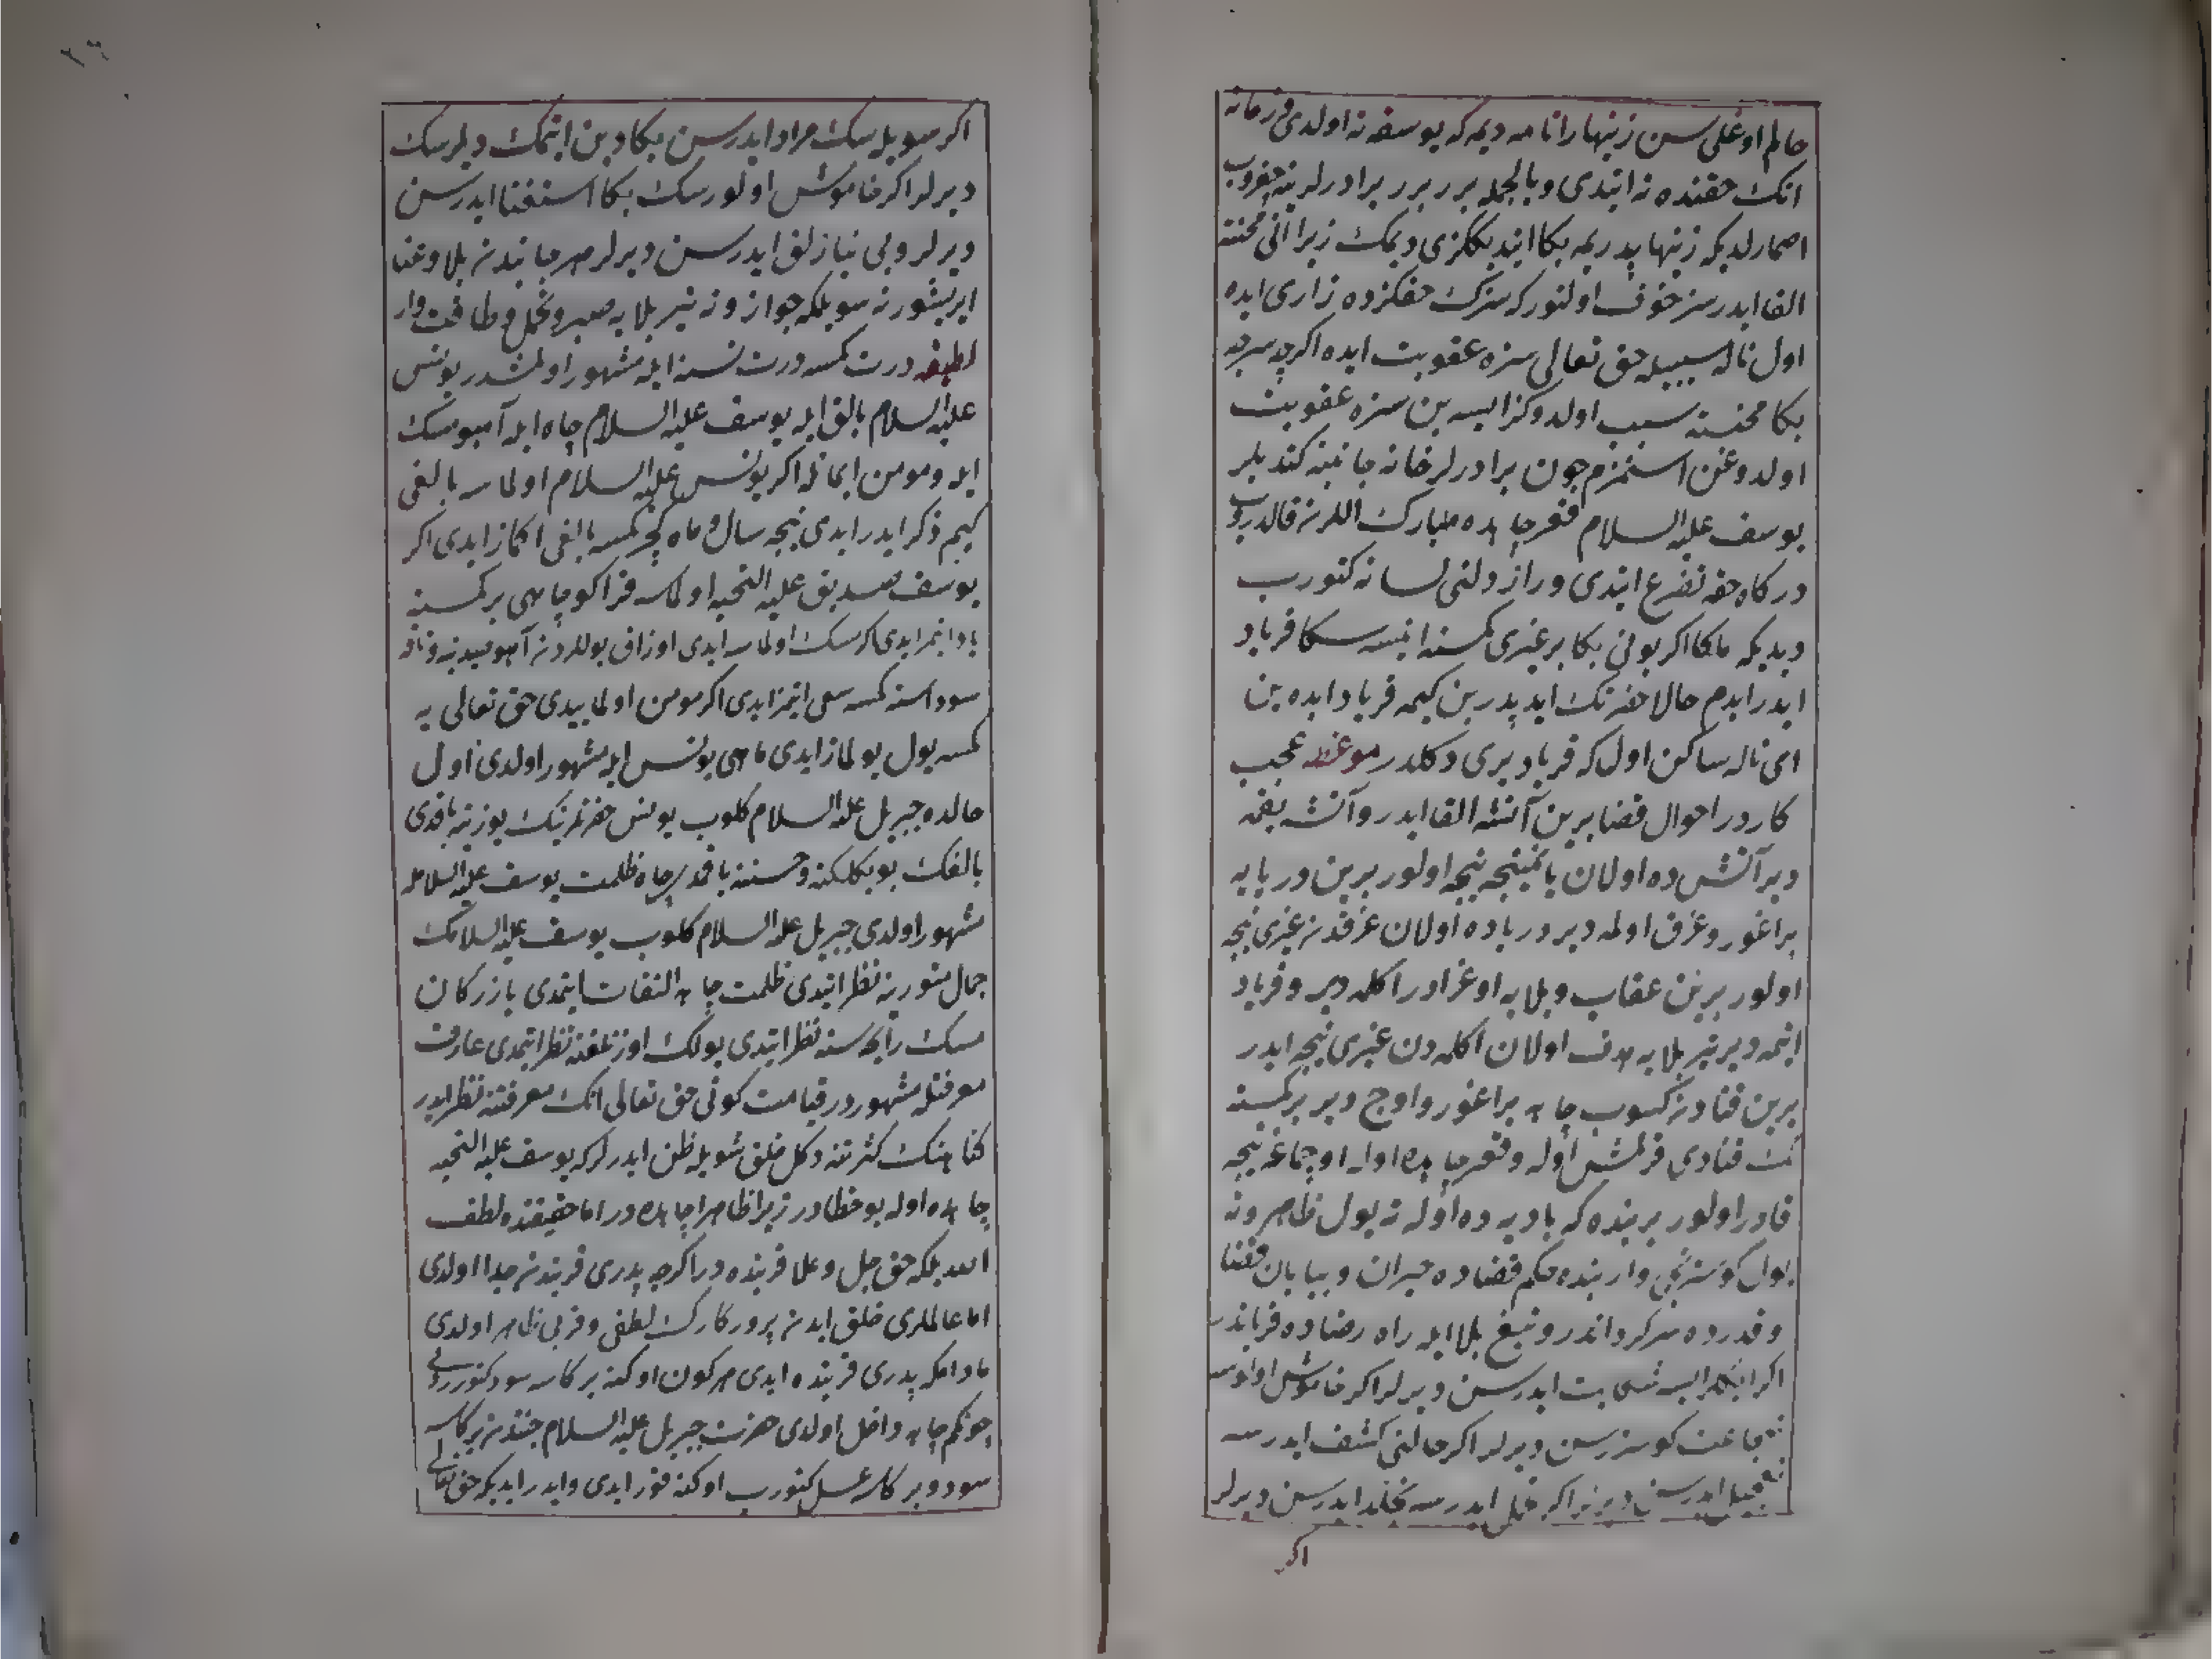 خالم اوغلی سن زینهار انامه دیمه که یوسفه نه اولدی فرمانه
انک حقنده نه ایتدی وبالجمله برر برر برادرلرینه چغروب
اصمارلدیکه زینهار پدریمه بکا ایتدیککزی دیمک زیرا انی محنته
القا ایدرسز خوف اولنور که سزک حقکزده زاری ایده
اول ناله سببیله حق تعالی سزه عقوبت ایده اکرچه سزجه
بکا محنته سبب اولدوکز ایسه بن سزه عقوبت
اولدوغن استمزم چون برادرلر خانه جانبنه کتدیلر
یوسف علیه السلام قعر چاهده مبارک اللرنی قالدروب
درکاه حقه تضرع ایتدی وراز دلنی لسانه کتورب
دیدیکه ملکا اکر بونی بکا بر غیری کمسنه ایتسه سکا فریاد
ایدر ایدم حالا حضرتک ایدیدر بن کیمه فریاد ایده ین
ای ناله ساکن اول که فریاد یری دکلدر موعظه عجب
کاردر احوال قضا برین آتشه القا ایدر وآتشه یقمه
دیر آتش ده اولان یانمینجه نیجه اولور برین دریایه
براغور وغرق اولمه دیر دریاده اولان غرقدن غیری نیجه
اولور برین عقاب وبلایه اوغرادر اکلمه دیر وفریاد
ایتمه دیر تیر بلایه هدف اولان اکلمه دن غیری نیجه ایدر
برین قنادن کسوب چاهه براغور واوچ دیر بر کمسنه
نک قنادی قرلمش اوله وقعر چاهده اوله اوچماغه نیجه
قادر اولور بر بنده که بادیه ده اوله نه یول ظاهر ونه
یول کوستریجی وار بنده حکم قضاده حیران وبیابان قضا
وقدرده سرکرداندر وتیغ بلا ایله راه رضاده قرباندر
اکر ایکلر ایسه شکایت ایدرسن دیرلر اکر خاموش اولورسه
شجاعت کوسترسن دیرلر اکر حالنی کشف ایدرسه
تعجیل ایدرسن دیرلر اکر تحمل ایدرسه تجلد ایدرسن دیرلر
اکر
اکر سویلرسک مراد ایدرسن بکا دین ایتمک دیلرسک
دیرلر اکر خاموش اولورسک بکا استغنا ایدرسن
دیرلر وبی نیازلق ایدرسن دیرلر هر جانبدن بلا وعنا
ایریشور نه سویلمکه جواز ونه تیر بلایه صبر وتحمل وطاقت وار
لطیفه درت کمسه درت نسنه ایله مشهور اولمشدر یونس
علیه السلام بالق ایله یوسف علیه السلام چاه ایله آهو مسک
ایله ومومن ایمانله اکر یونس علیه السلام اولماسه بالغی
کیم ذکر ایدر ایدی نیجه سال وماه کچر کمسه بالغی اکماز ایدی اکر
یوسف صدیق علیه التحیه اولماسه قراکو چاهی بر کمسنه
یاد ایتمز ایدی اکر مسک اولماسه ایدی اوزاق یوللردن آهو صیدینه
سوداسنه کمسه سعی ایتمز ایدی اکر مومن اولمایدی حق تعالی یه
کمسه یول بولماز ایدی ماهی یونس ایله مشهور اولدی اول
حالده جبریل علیه السلام کلوب یونس حضرتنک یوزینه باقدی
بالغک بویکلکنه وحسننه باقمدی چاه ظلمت یوسف علیه السلامله
مشهور اولدی جبریل علیه السلام کلوب یوسف علیه السلامک
جمال منورینه نظر ایتدی ظلمت چاهه التفات ایتمدی بازرکان
مسک رایحه سنه نظر ایتدی یولک اوزنلغنه نظر ایتمدی عارف
معرفتله مشهوردر قیامت کونی حق تعالی انک معرفتنه نظر ایدر
کناهنک کثرتنه دکل خلق شویله ظن ایدرلر که یوسف علیه التحیه
چاهده اوله بو خطادر زیرا ظاهرا چاهده در اما حقیقتده لطف
الله بلکه حق جل وعلا قربنده در اکرچه پدری قربندن جدا اولدی
اما عالملری خلق ایدن پروردکارک لطفی وقربی ظاهر اولدی
مادامکه پدری قربنده ایدی هر کون اوکنه بر کاسه سود کتوررلردی
چونکم چاهه داخل اولدی حضرت جبریل علیه السلام جنتدن بر کاسه
سود وبر کاسه عسل کتورب اوکنه قور ایدی وایدر ایدیکه حق تعالی